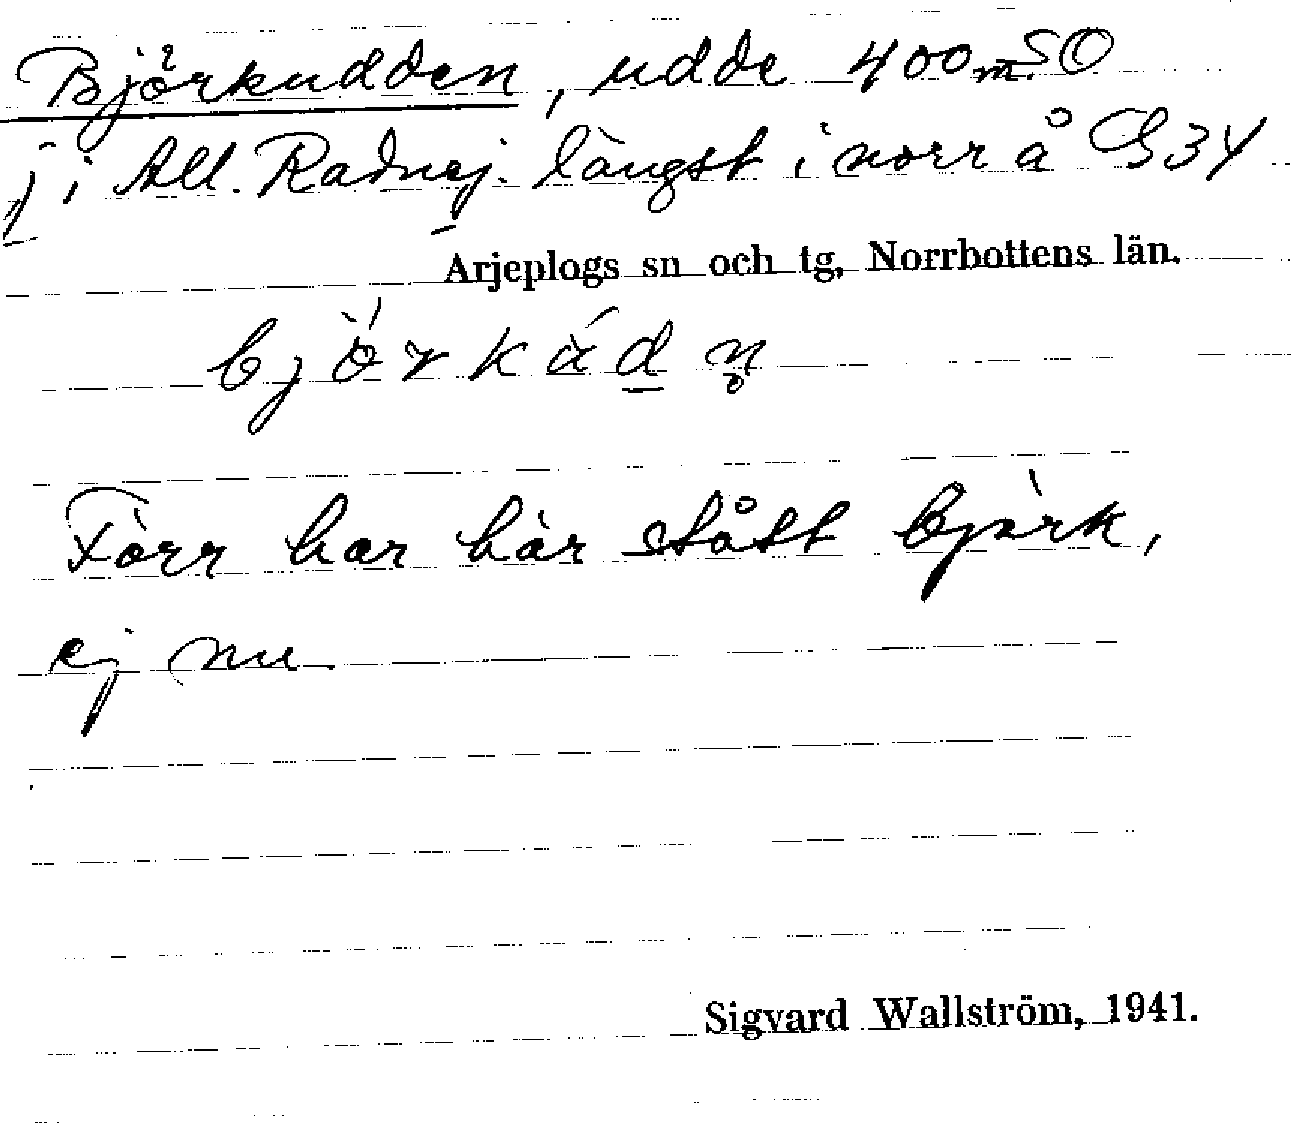 Björkudden, udde 400 m SO
j i All. Radnej. längst i norr å G34
Arjeplogs sn och tg, Norrbottens län.
björkádn̥
Förr har här stått björk,
ej nu
Sigvard Wallström, 1941.